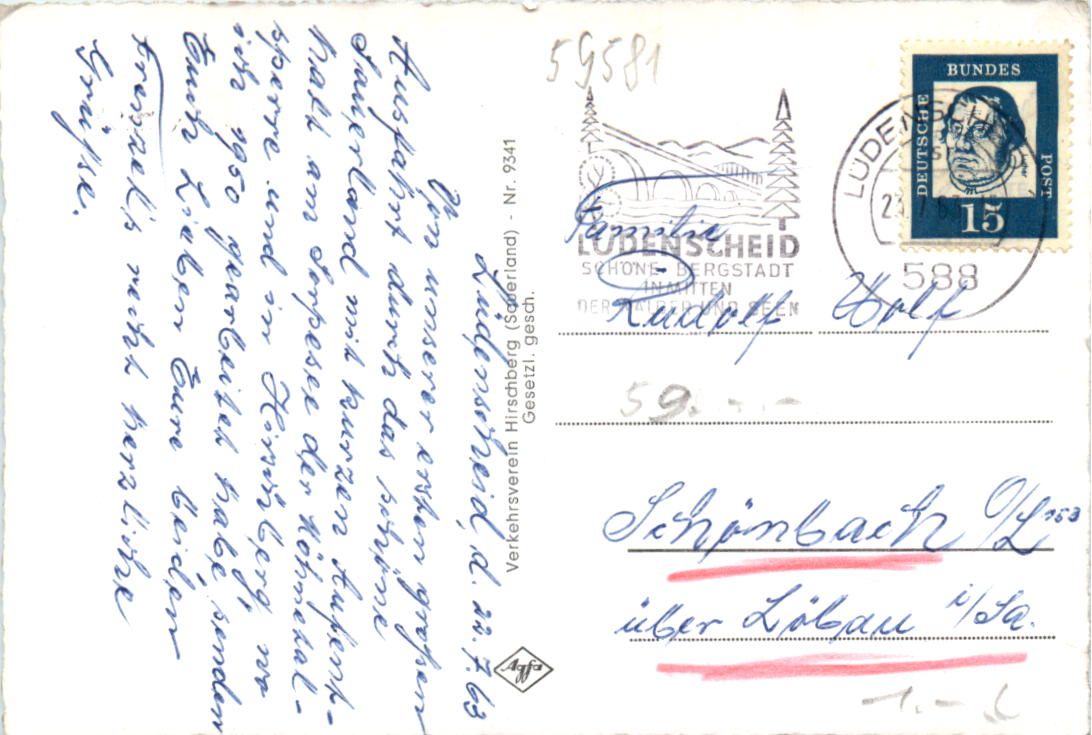 Lüdenscheid, d. 22.7.63
Von unserer ersten großen
Ausfahrt durch das schöne
Sauerland mit kurzen Aufent-
halt am Sorpesee der Möhnetal-
sperre und in Hirschberg, wo
ich 1950 gearbeitet habe, senden
Euch Lieben Eure beiden
Frenzels recht herzliche
Grüße.
Verkehrsverein Hirschberg (Sauerland) - Nr. 9341
Gesetzl. gesch.
Agfa
59581
DEUTSCHE
BUNDES
POST
15
LÜDENSCHEID
588
LÜDENSCHEID
SCHÖNE BERGSTADT
INMITTEN
DER WÄLDER UND SEEN
Familie
Rudolf Wolf
59.-
Schönbach O/L 153
über Löbau i/Sa.
1.-